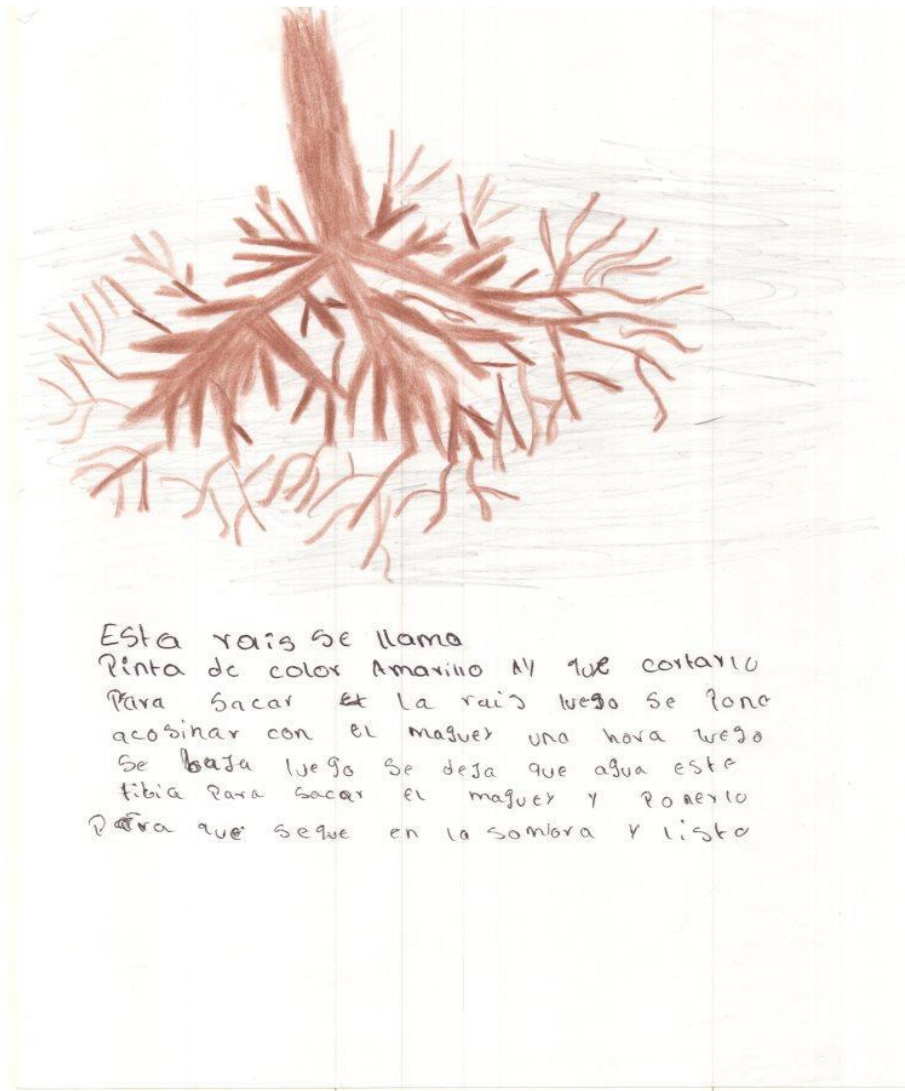 Esta rais se llama
Pinta de color Amarillo Ay que cortarlo
Para Sacar la rais luego se pone
acosinar con el maguey una hora luego
Se baja luego se deja que agua este
tibia Para Sacar el maguey y Ponerlo
Para que seque en la sombra y listo